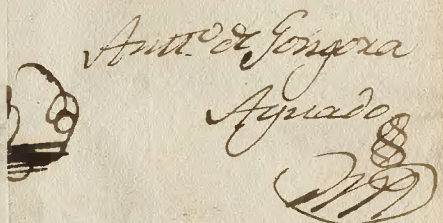 Antt.º de Gongora
Aguado